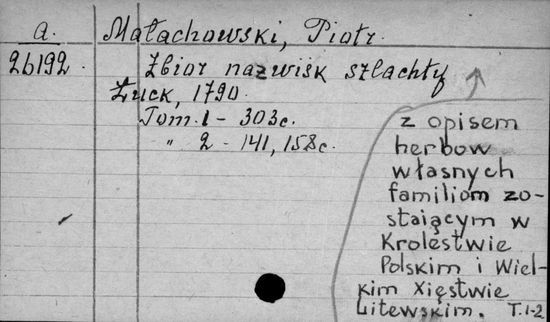 a. Małachowski, Piotr.
26192. Zbiór nazwisk szlachty
Łuck, 1790.
Tom. 1 - 303c.
" 2 - 141, 158c.
z opisem
herbow
własnych
familiom zo-
staiącym w
Krolestwie
Polskim i Wiel-
kim Xięstwie
Litewskim. T.1-2